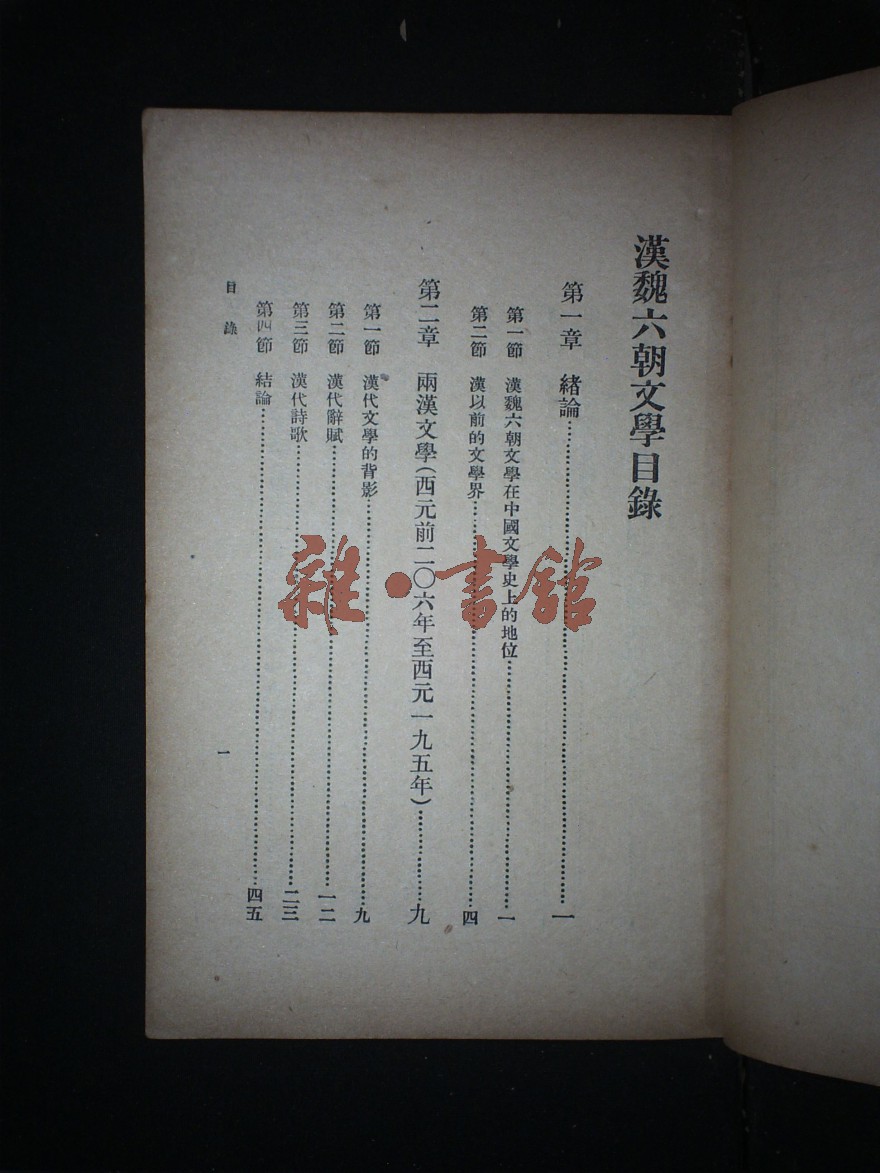 漢魏六朝文學目錄
第一章 緒論……一
第一節 漢魏六朝文學在中國文學史上的地位……一
第二節 漢以前的文學界……四
第二章 兩漢文學(西元前二〇六年至西元一九五年)……九
第一節 漢代文學的背影……九
第二節 漢代辭賦……一二
第三節 漢代詩歌……二三
第四節 結論……四五
目錄
一
雜·書館